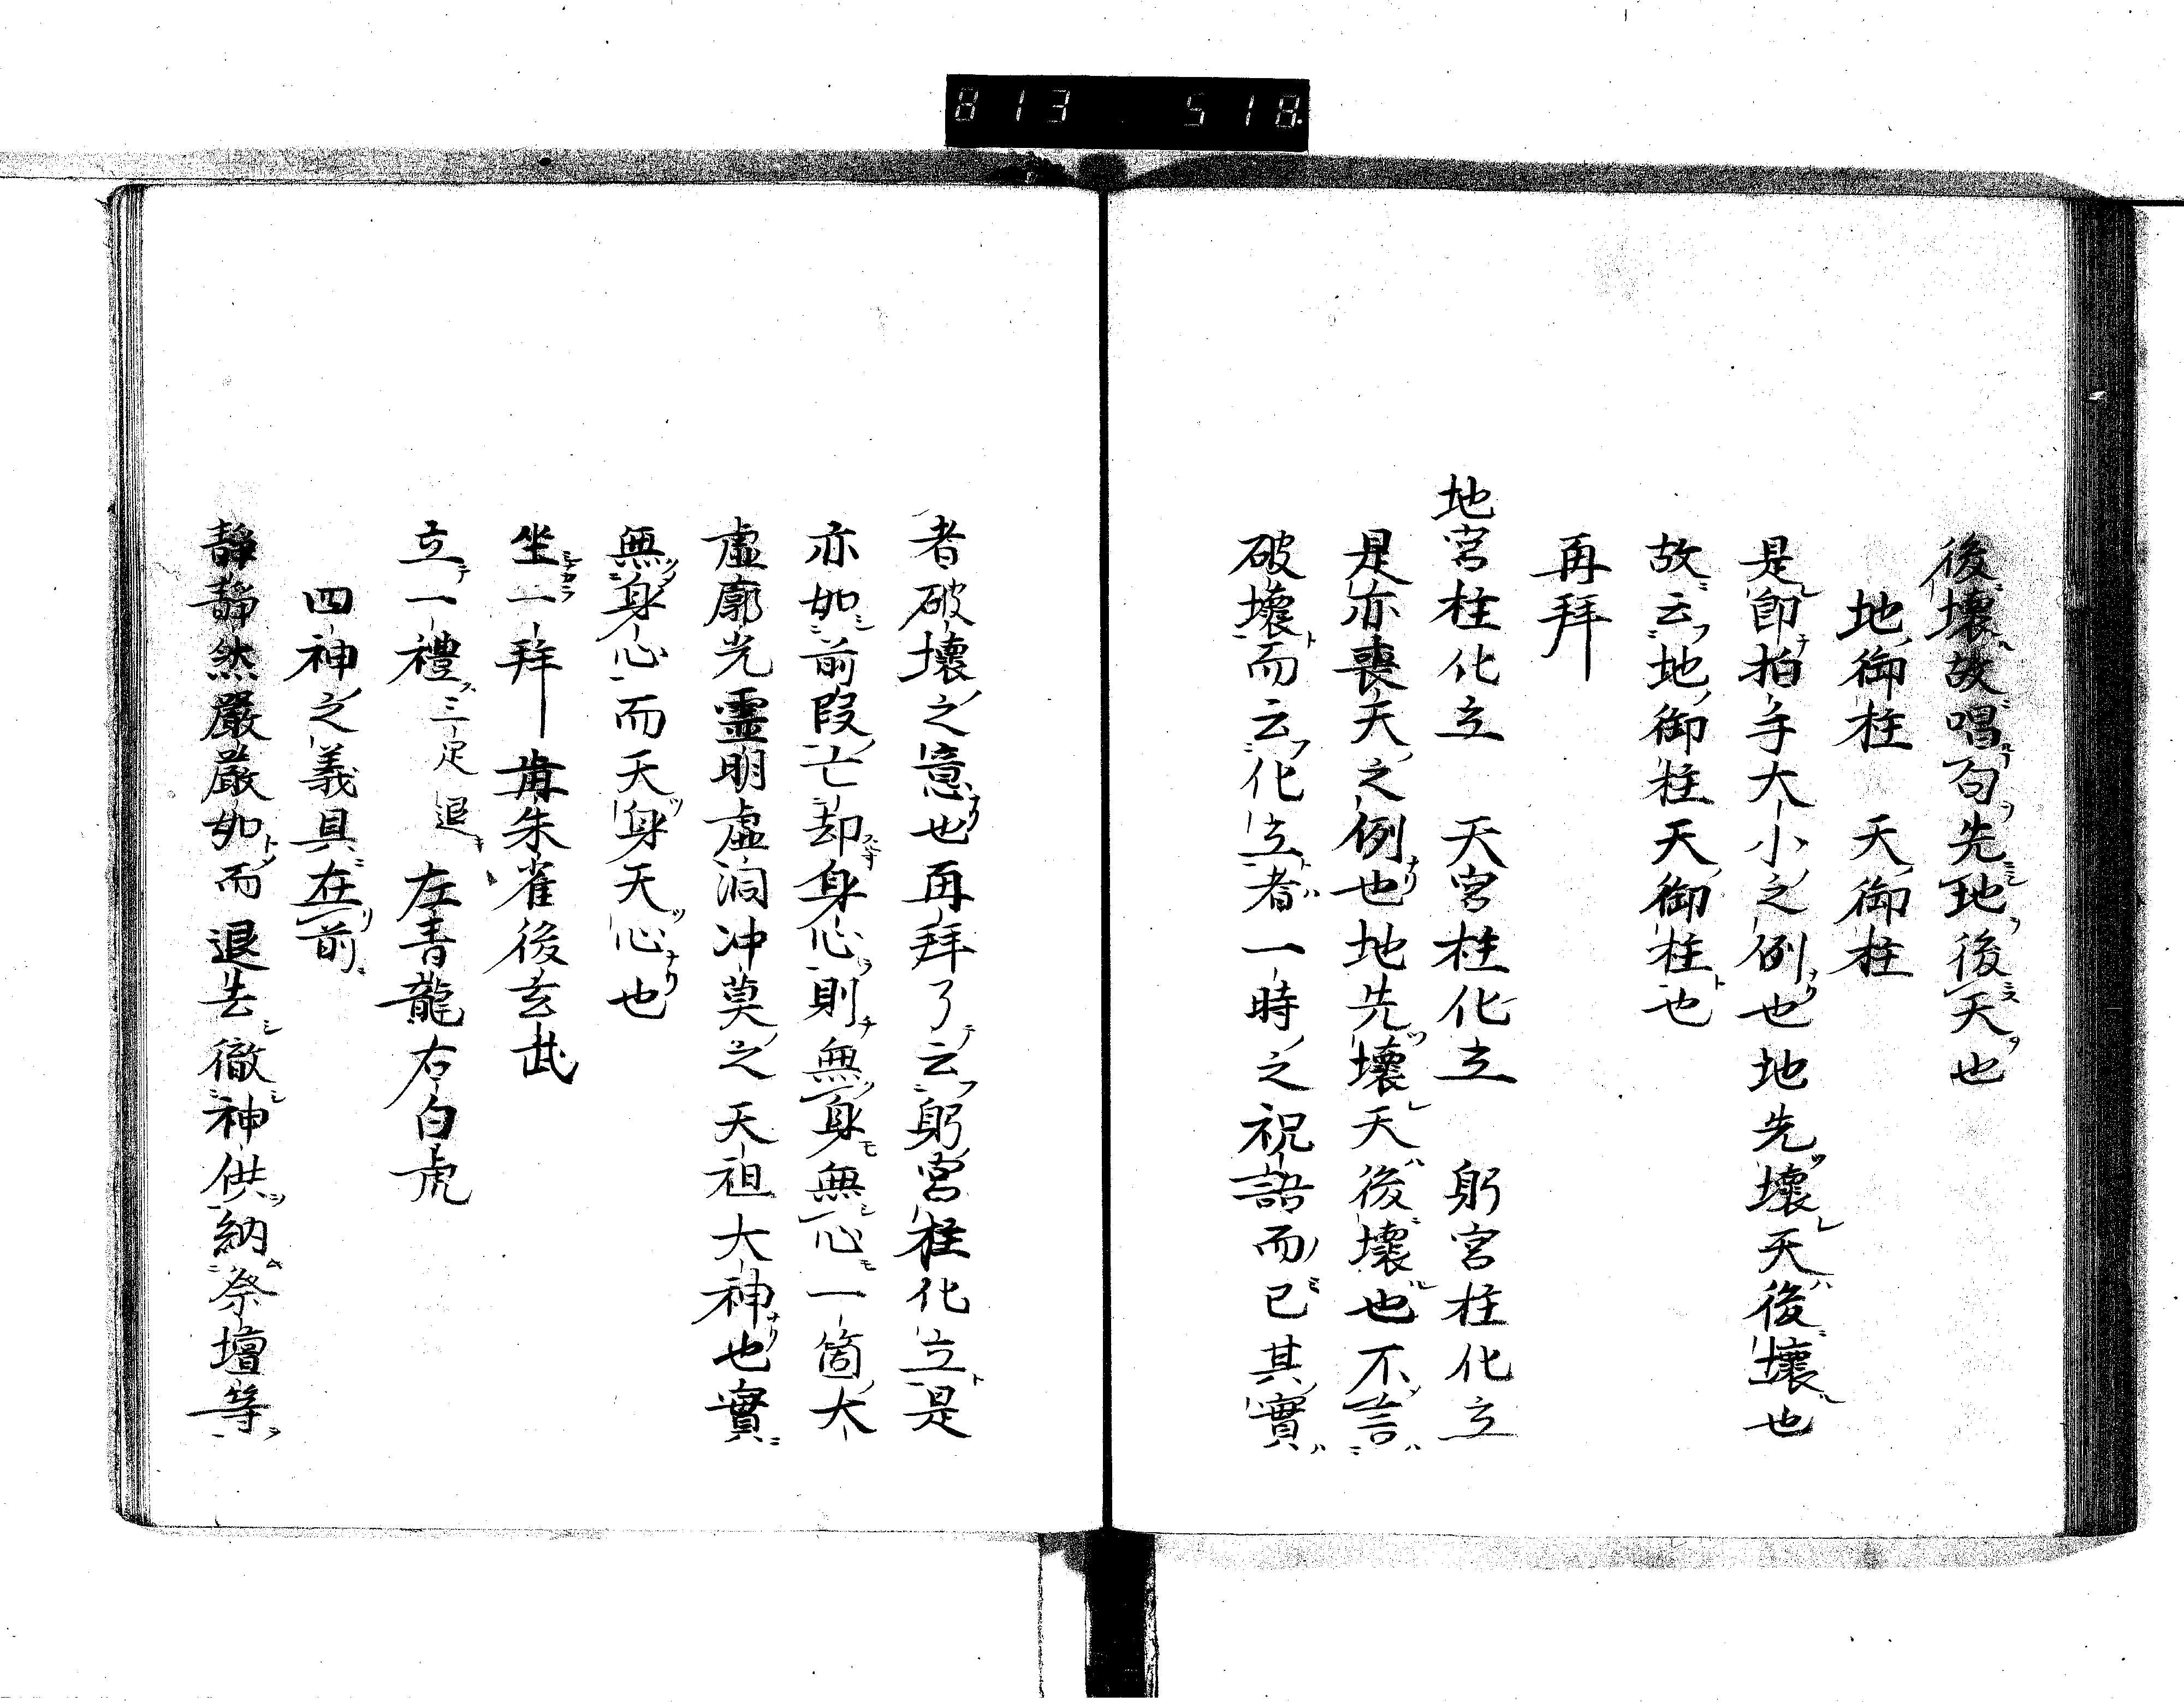 813 518
後壞故唱句先地後天也
地御柱 天御柱
是卽拍手大小之例也地先壞天後壞也
故云地御柱天御柱也
再拜
地宮柱化立 天宮柱化立 躬宮柱化立
是亦喪天之例也地先壞天後壞也不言
破壞而云化立者一時之祝語而已其實
者破壞之意也再拜了云躬宮柱化立是
亦如前段亡却身心則無身無心一箇大
虛廓光靈明虛洞冲莫之天祖大神也實
無身心而天身天心也
坐一拜 前朱雀後玄武
立一禮三足退 左青龍右白虎
四神之義具在前
靜靜然嚴嚴如而退去徹神供納祭壇等